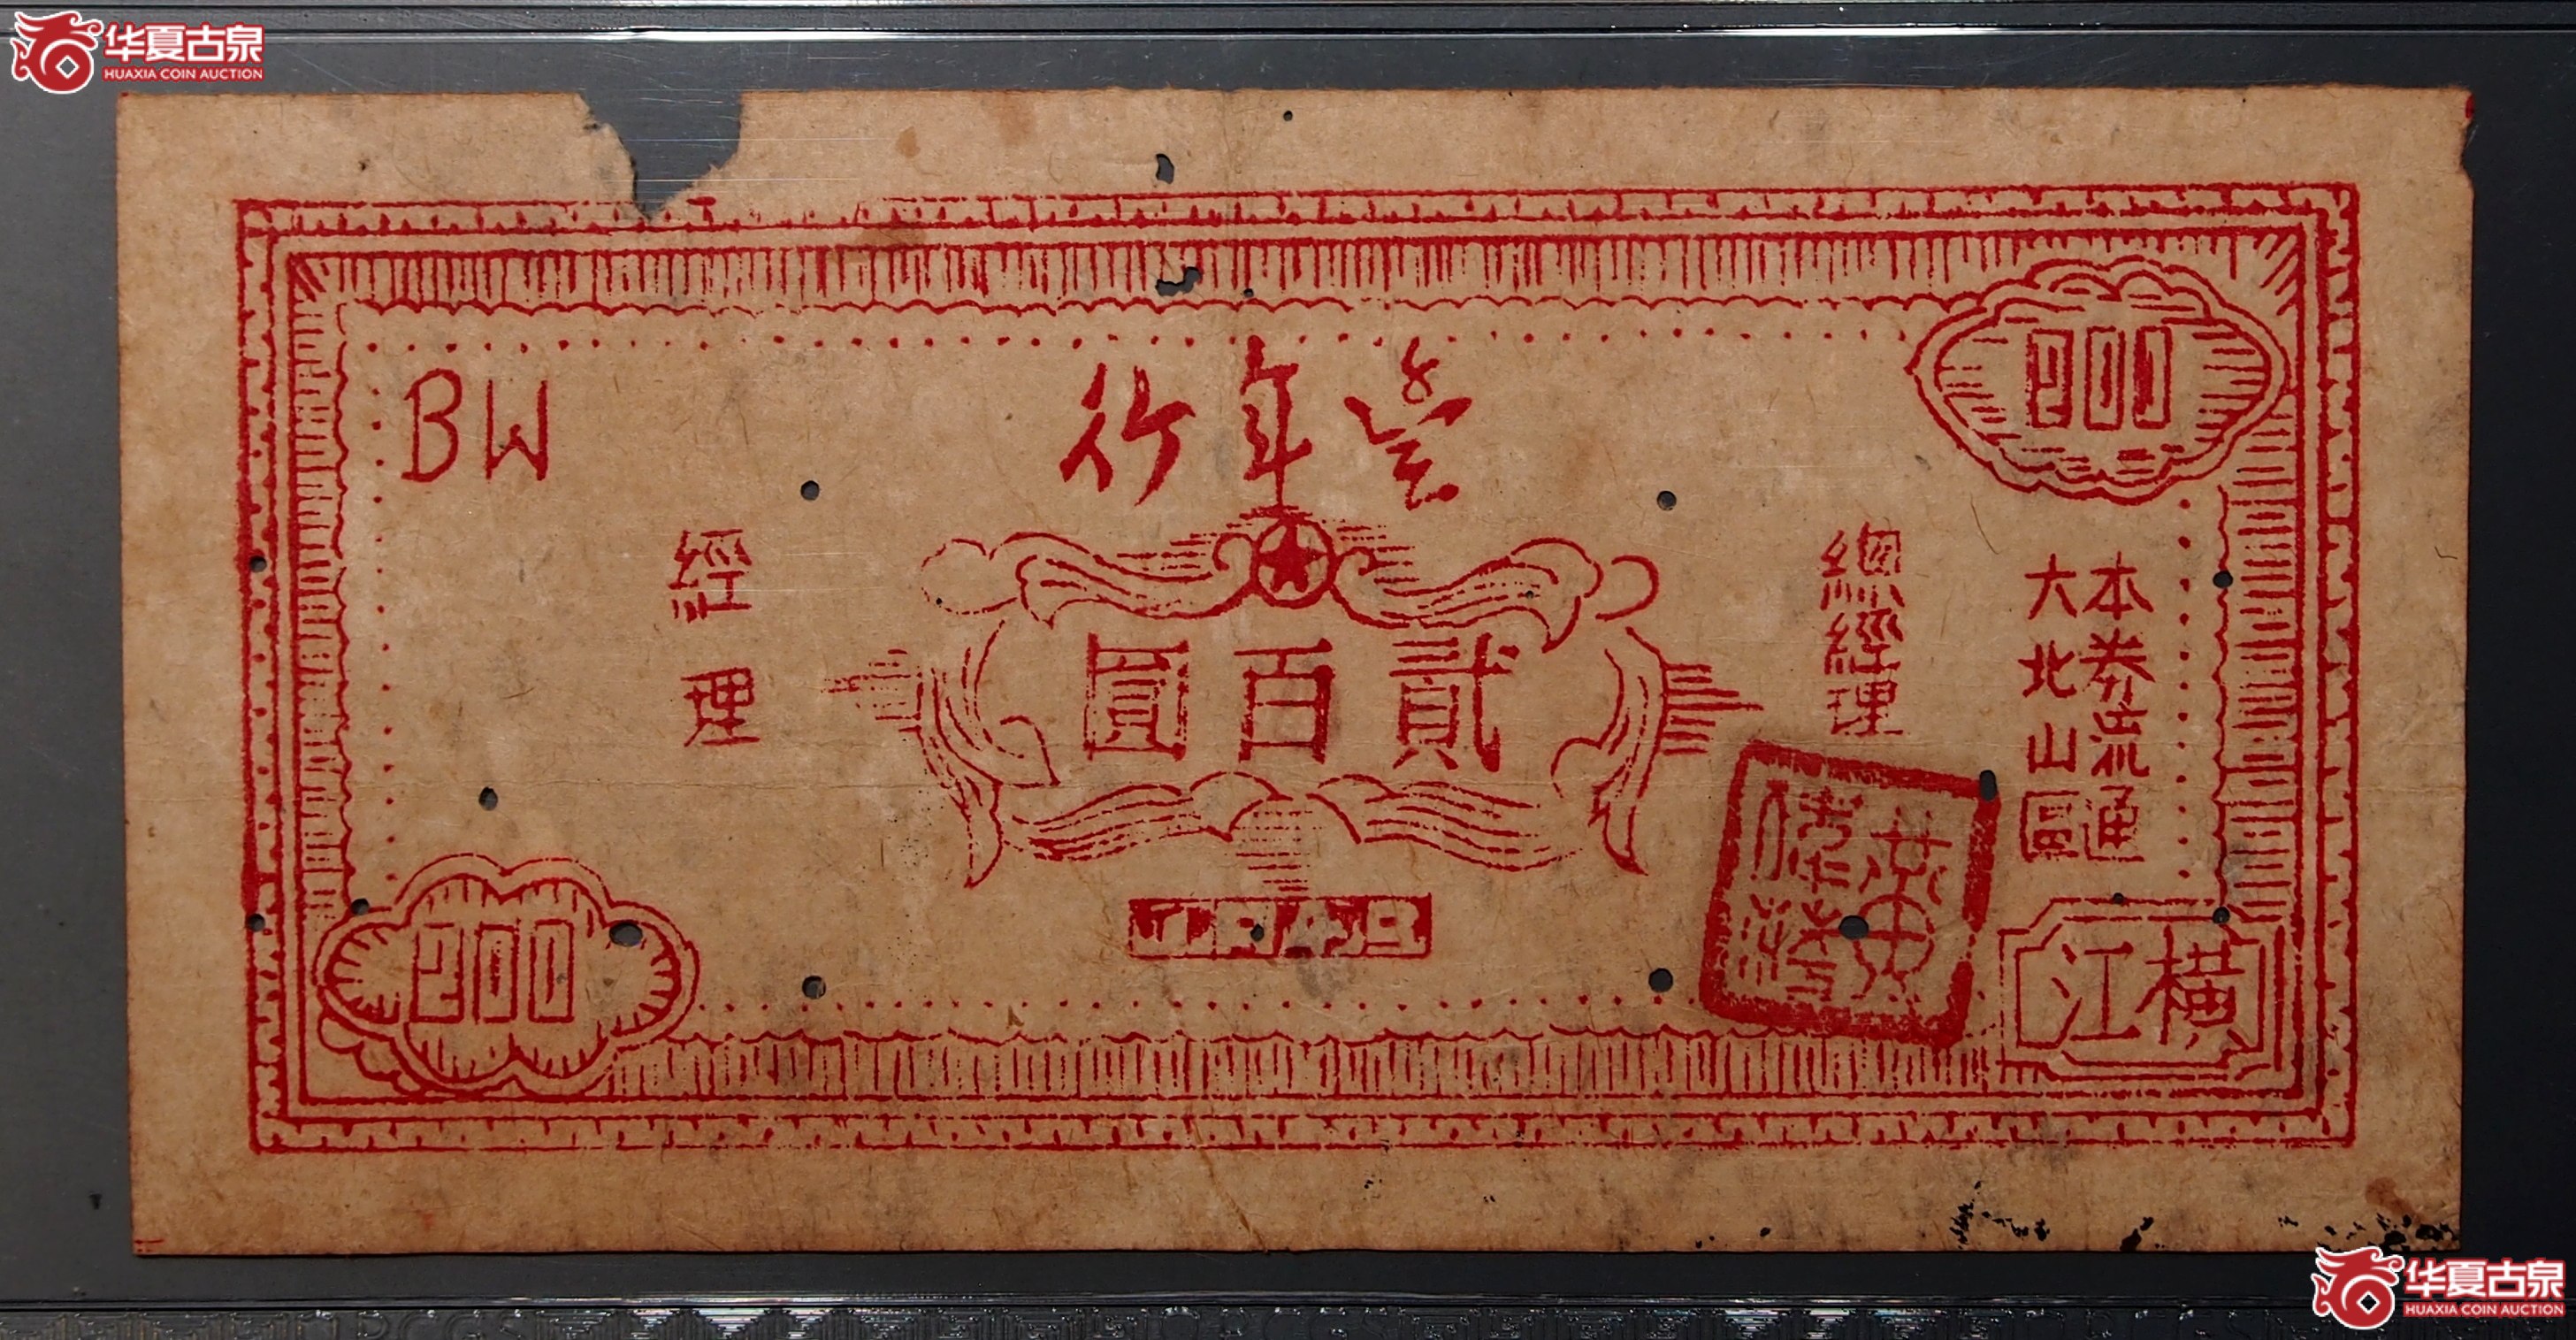 华夏古泉
HUAXIA COIN AUCTION
BW
豐年行
200
經理
總經理
本券流通
大北山區
貳百圓
1949
200
橫江
华夏古泉
HUAXIA COIN AUCTION